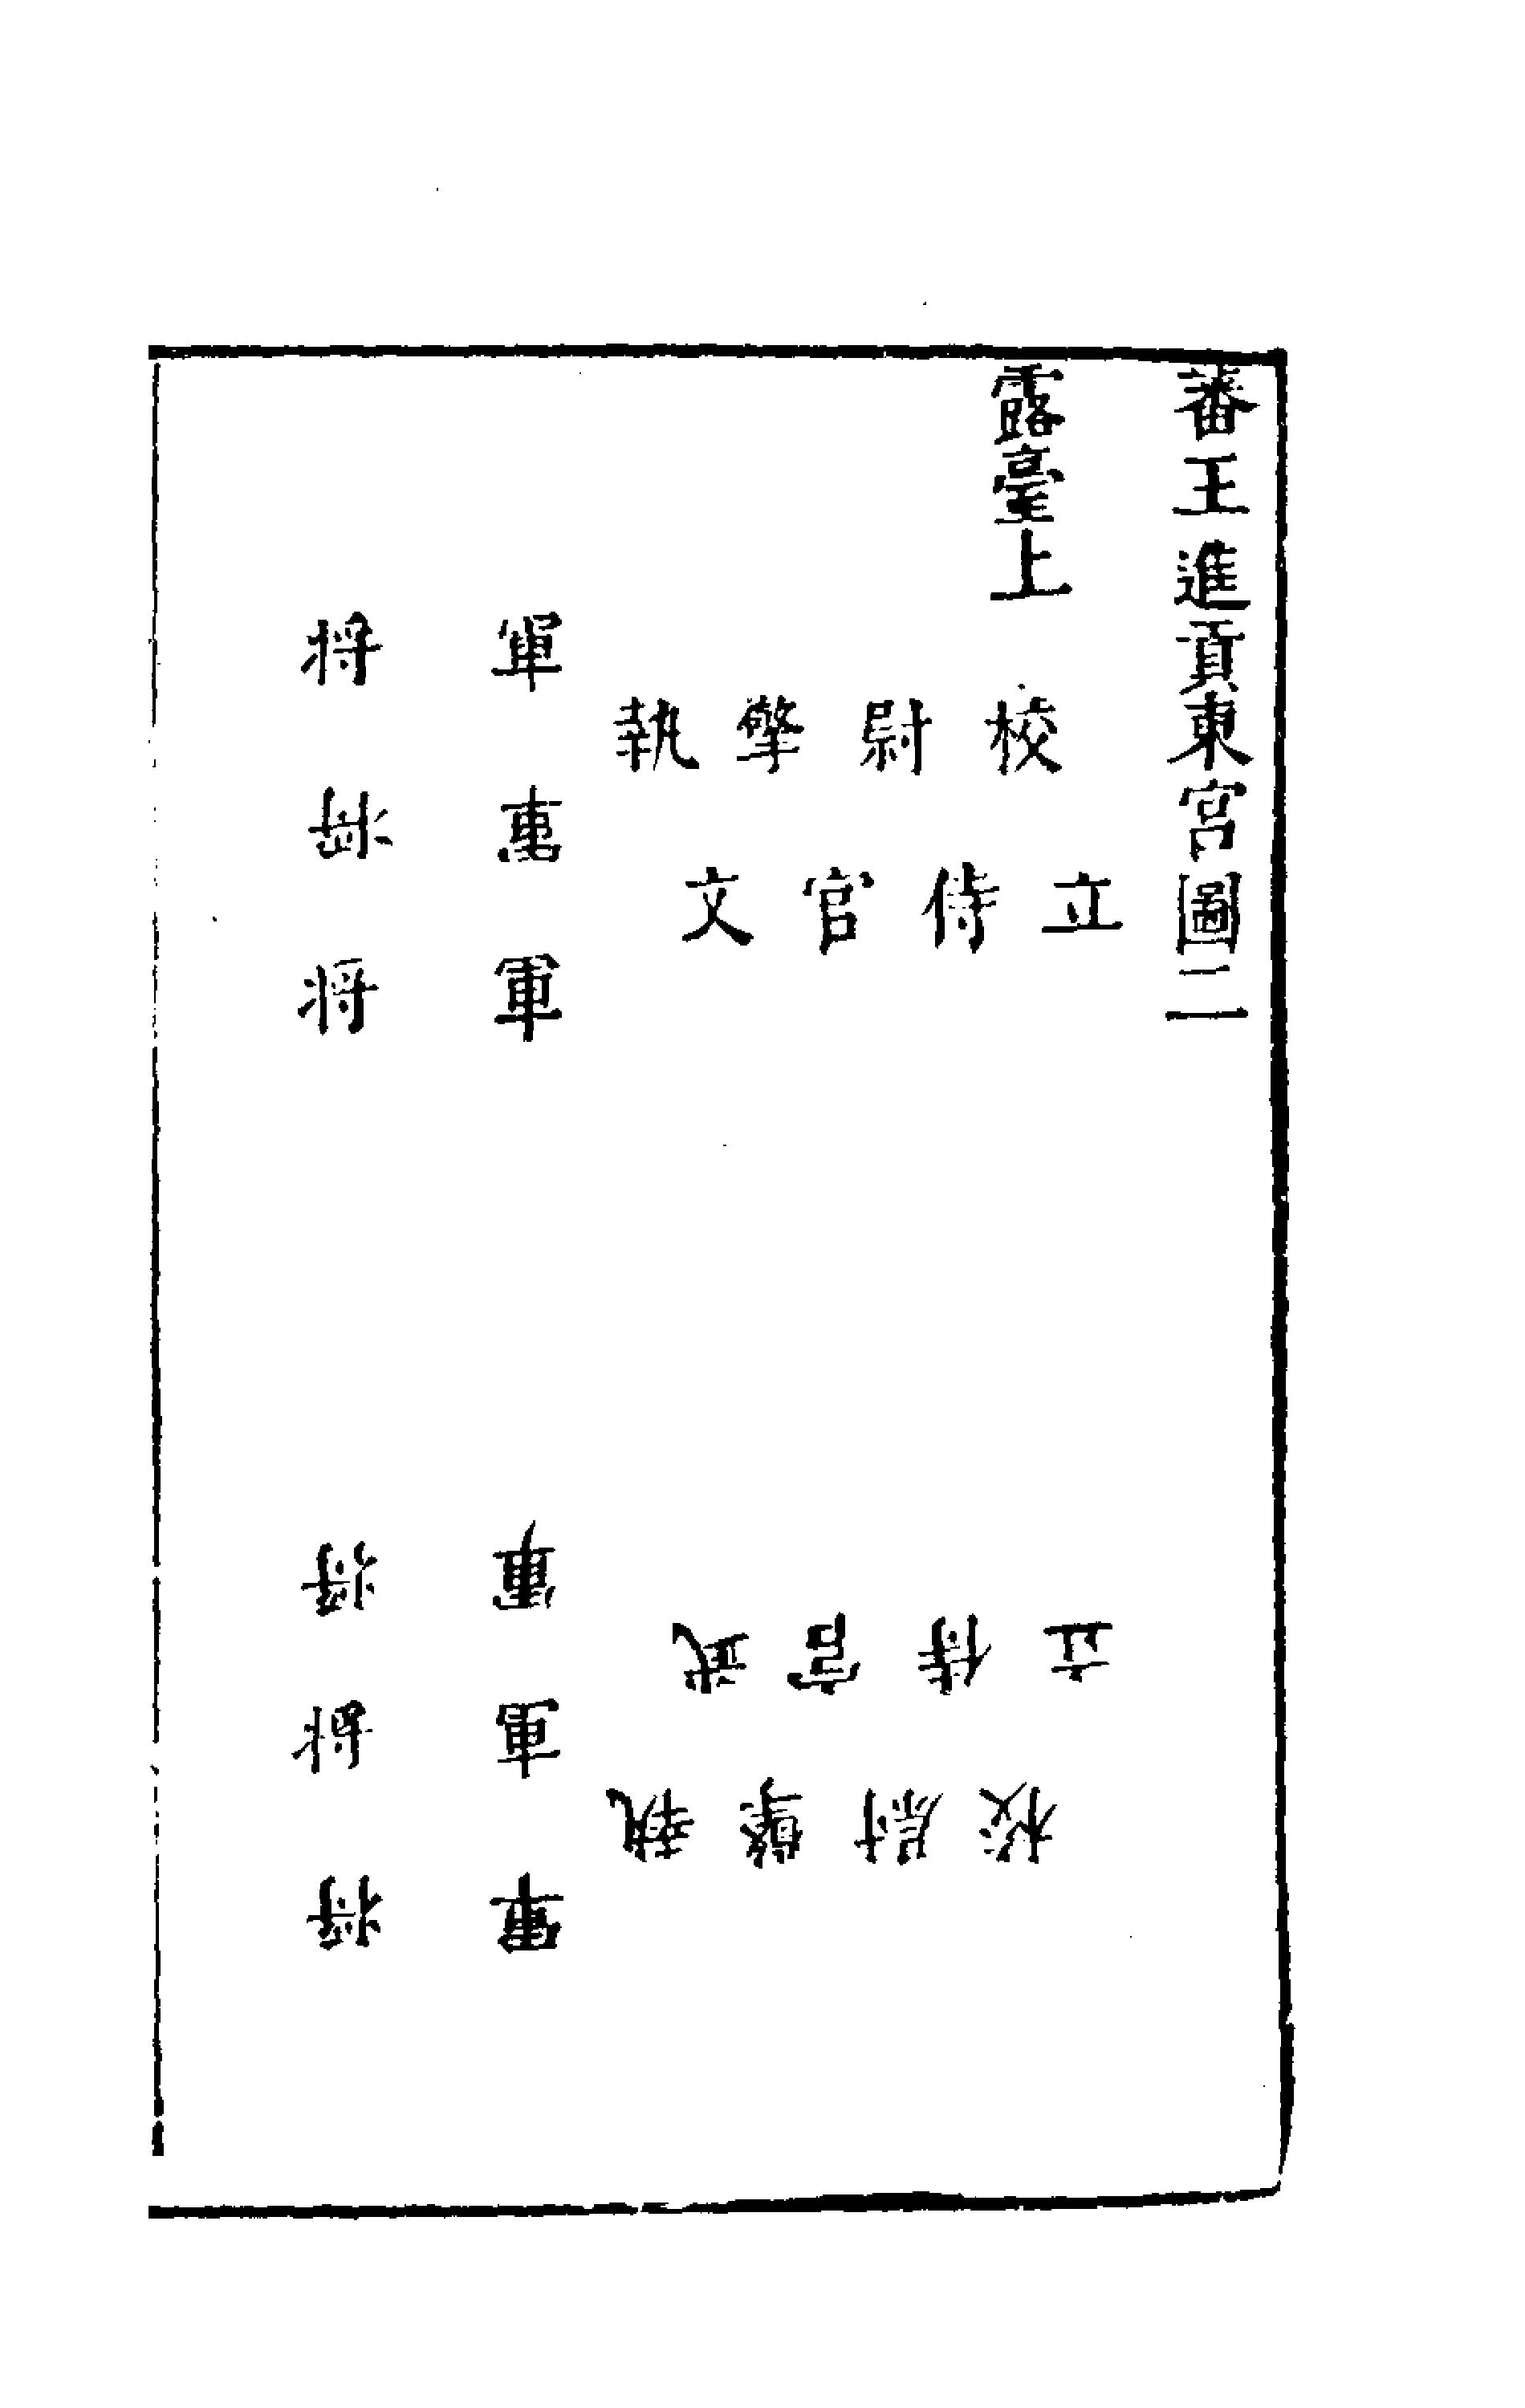 蕃王進貢東宮圖二
露臺上
校尉擎執
文官侍立
武官侍立
校尉擎執
將軍
將軍
將軍
將軍
將軍
將軍